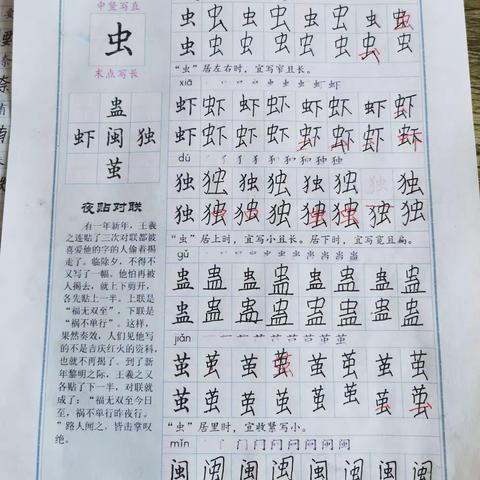 中竖写直
虫
末点写长
蛊
虾 闽 独
茧
夜贴对联
有一年新年，王羲
之连贴了三次对联都被
喜爱他的字的人偷着揭
走了。临除夕，不得不
又写了一幅。他怕再被
人揭去，就上下剪开，
各先贴上一半。上联是
“福无双至”，下联是
“祸不单行”。这样，
果然奏效，人们见他写
的不是吉庆红火的资科，
也就不再揭了。到了新
年黎明之际，王羲之又
各贴了下一半，对联就
成了：“福无双至今日
至，祸不单行昨夜行。
”路人闻之，皆击掌叹
绝。
虫 虫 虫 虫 虫 虫 虫 虫 虫
虫 虫 虫 虫 虫 虫 虫 虫 虫
“虫”居左右时，宜写窄且长。
xiā
虾 虾 虾 虾 虾 虾 虾 虾 虾
虾 虾 虾 虾 虾 虾 虾 虾 虾
dú
独 独 独 独 独 独 独 独 独
独 独 独 独 独 独 独 独 独
“虫”居上时，宜写小且长。居下时，宜写宽且扁。
gǔ
蛊 蛊 蛊 蛊 蛊 蛊 蛊 蛊
蛊 蛊 蛊 蛊 蛊 蛊 蛊 蛊
jiǎn
茧 茧 茧 茧 茧 茧 茧 茧
茧 茧 茧 茧 茧 茧 茧 茧
“虫”居里时，宜收紧写小。
mǐn
闽 闽 闽 闽 闽 闽 闽 闽